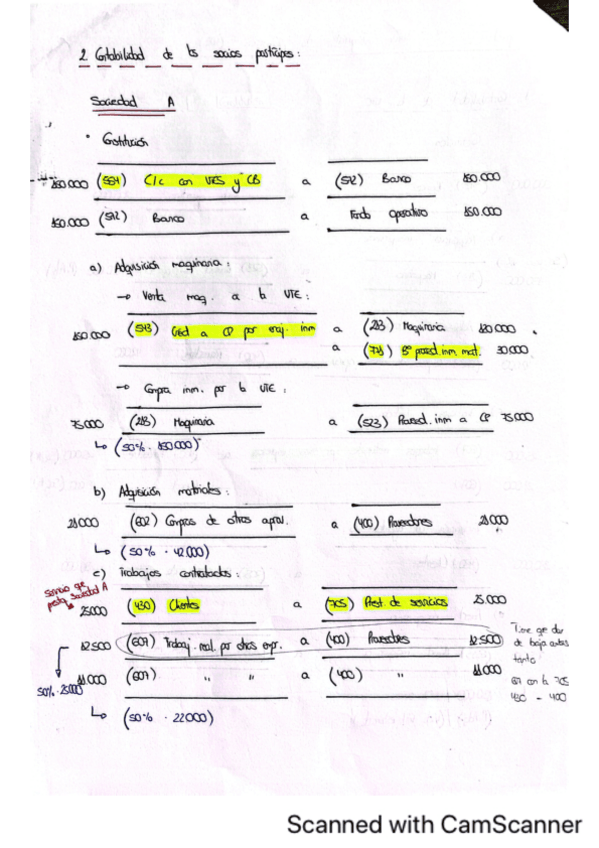 2. Contabilidad de los socios partícipes:
Sociedad A
• Constitución
150.000 (554) C/c con UTES y CB a (572) Banco 150.000
150.000 (572) Banco a Fondo operativo 150.000
a) Adquisición maquinaria:
→ Venta maq. a la UTE:
150.000 (543) Cred a CP por enaj. inm a (213) Maquinaria 120.000
a (771) Bº proced. inm mat. 30.000
→ Compra inm. por la UTE:
75.000 (213) Maquinaria a (523) Proveed. inm a CP 75.000
↳ (50% · 150.000)
b) Adquisición materiales:
21.000 (602) Compras de otros aprov. a (400) Proveedores 21.000
↳ (50% · 42000)
c) Trabajos contratados:
servicio que presta Sociedad A
25.000 (430) Clientes a (705) Prest. de servicios 25.000
12.500 (607) Trabaj. real. por otras empr. a (400) Proveedores 12.500
11.000 (607) " " a (400) " 11.000
50% · 25000
↳ (50% · 22000)
Tiene que dar
de baja antes
tanto
607 con la 705
430 - 400
Scanned with CamScanner